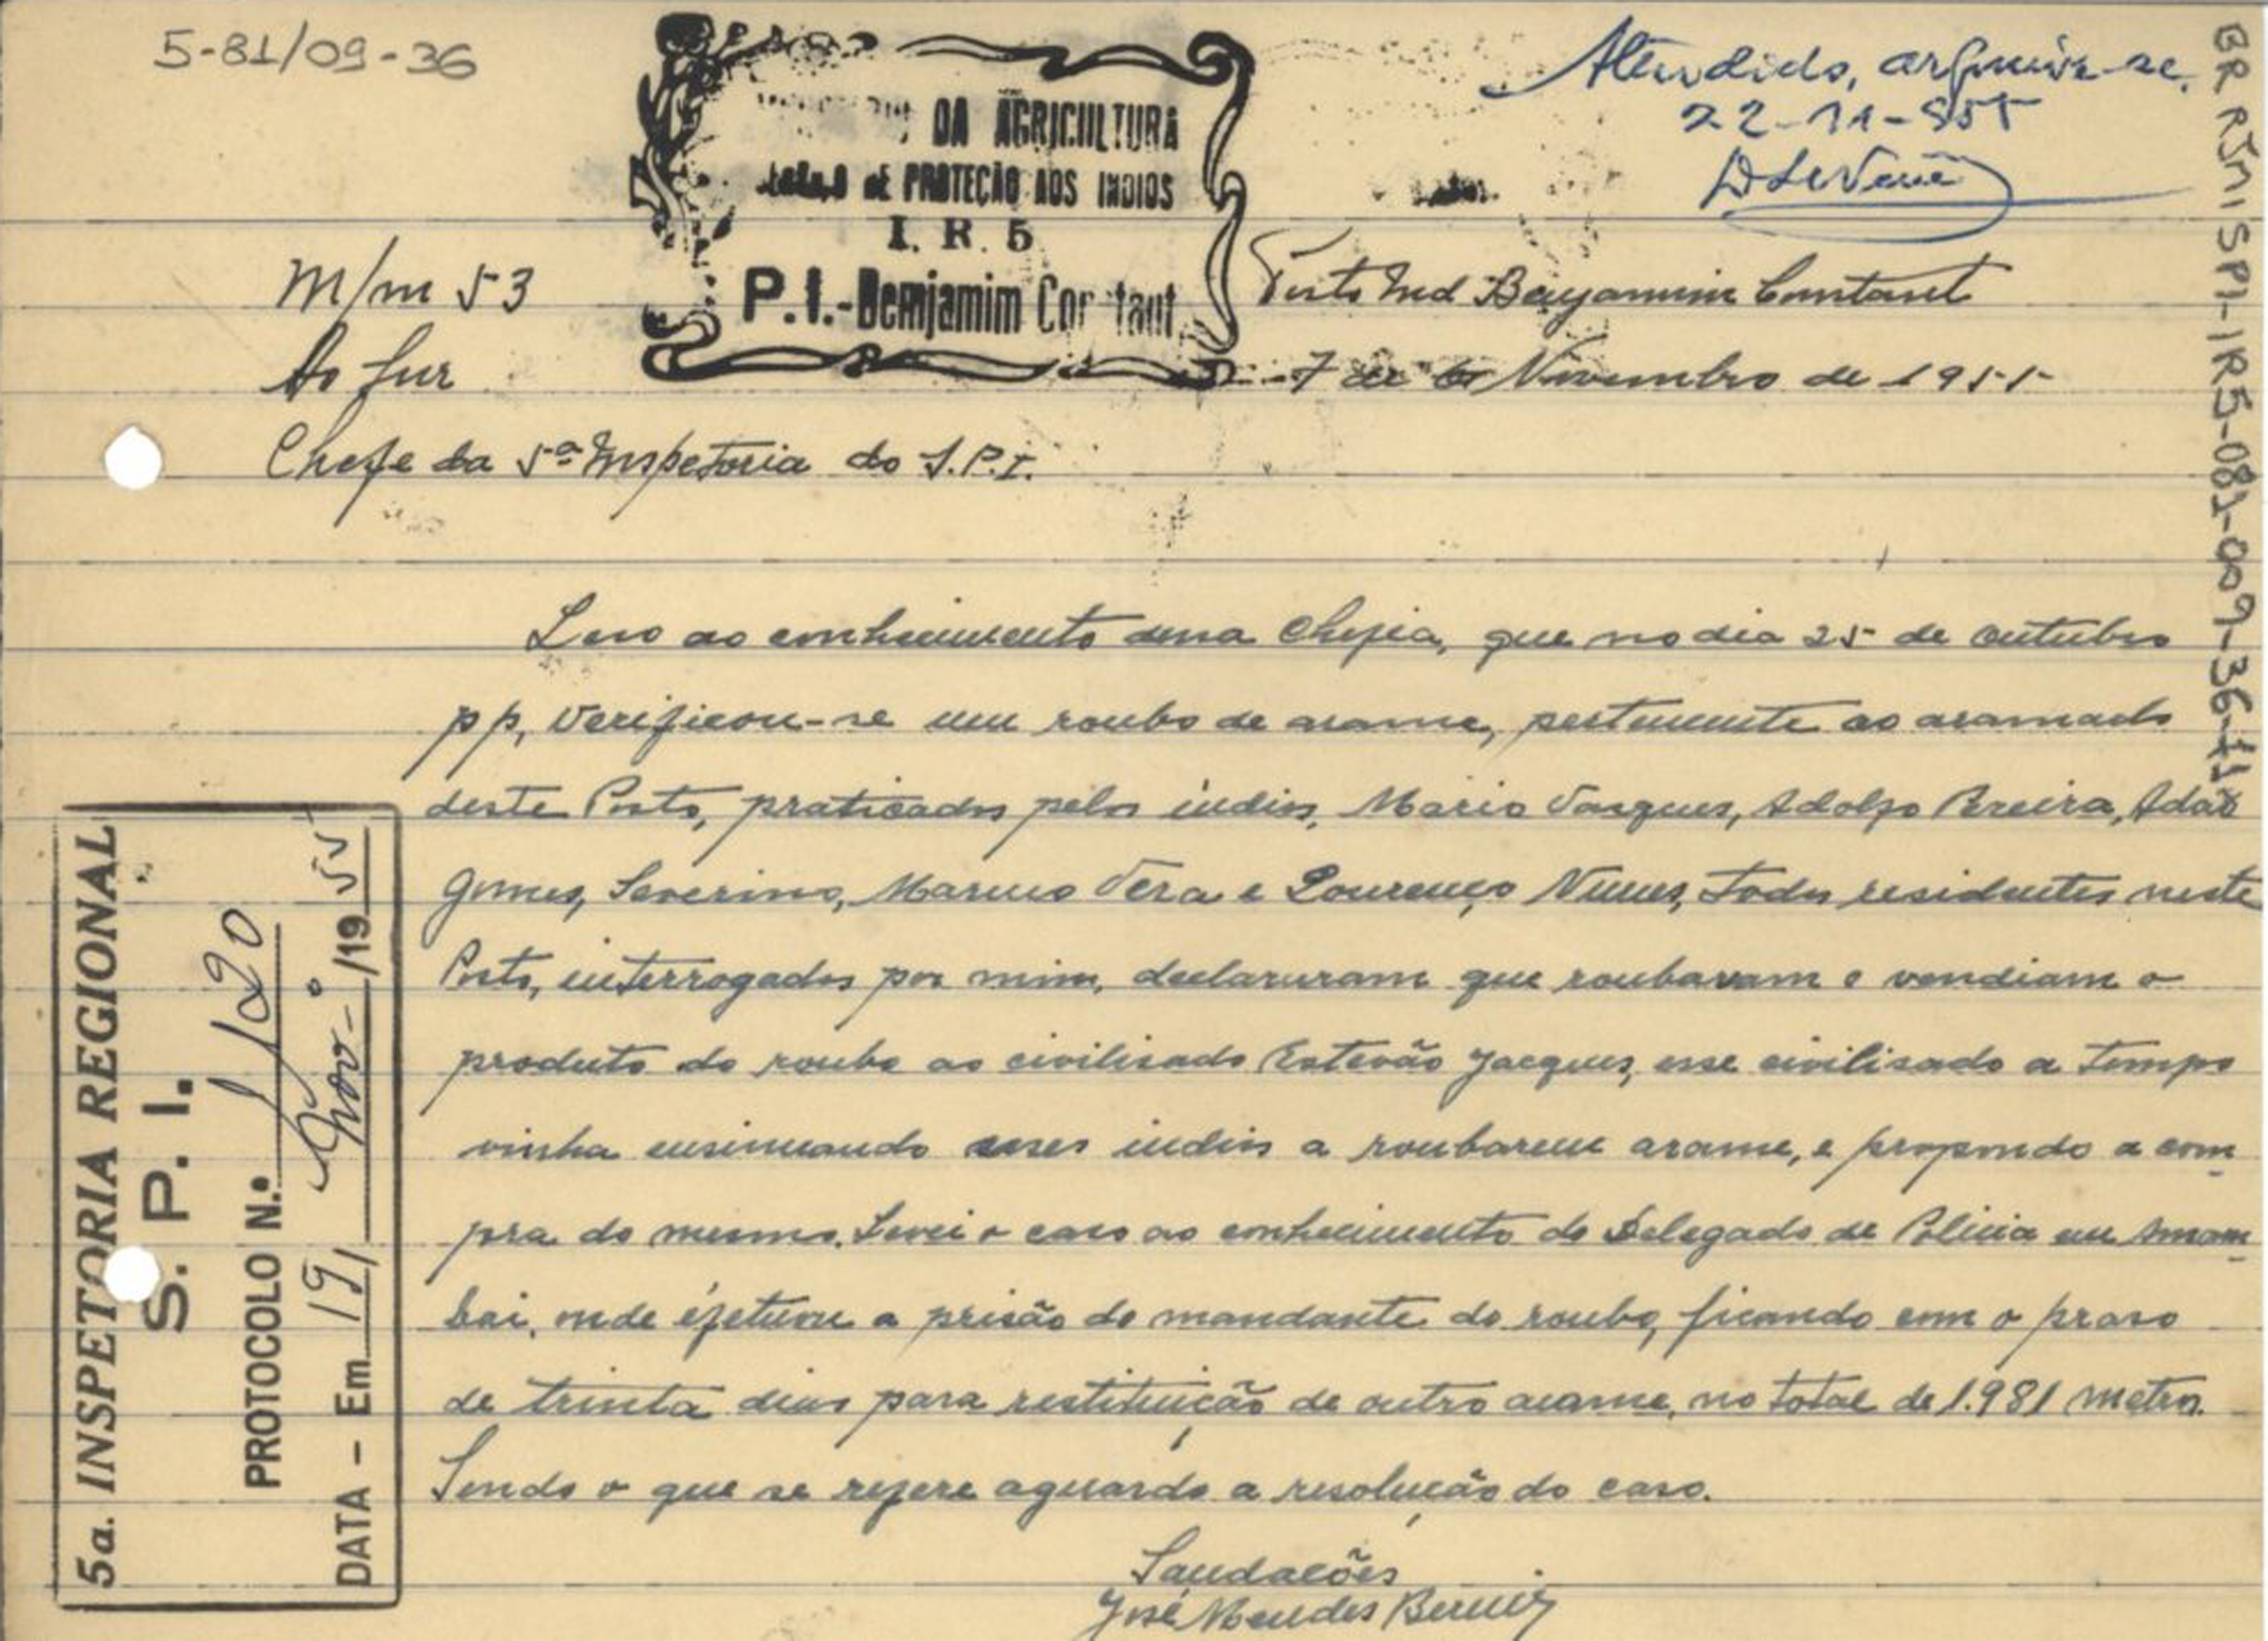 5-81/09-36
DA AGRICULTURA
DE PROTEÇÃO AOS INDIOS
I. R. 5
P. I.-Bemjamim Constant
Atendido, arquive-se.
22-11-955
BR RJMI SPI-IR5-081-009-36-f1
M/m 53
Posto Ind Benjamim Constant
Ao Snr
7 de Novembro de 1955
Chefe da 5ª Inspetoria do S.P.I.
Levo ao conhecimento dessa Chefia, que no dia 25 de outubro
pp, verificou-se um roubo de arame, pertencente ao aramado
deste Posto, praticados pelos indios, Mario Vasques, Adolfo Pereira, Adão
Gomes, Severino, Marino Vera e Lourenço Nunes, todos residentes neste
Posto, interrogados por mim, declararam que roubavam e vendiam o
produto do roubo ao civilisado Estevão Jacques, esse civilisado a tempo
vinha ensinuando esses indios a roubarem arame, e propondo a com
pra do mesmo. Levei o caso ao conhecimento do Delegado de Policia em Amam
bai, onde efetuou a prisão do mandante do roubo, ficando com o praso
de trinta dias para restituição de outro arame, no total de 1.981 metros.
Sendo o que se refere aguardo a resolução do caso.
Saudações
José Mendes
5a. INSPETORIA REGIONAL
S. P. I.
PROTOCOLO N.º 1020
DATA - Em 19/ Nov-º /1955